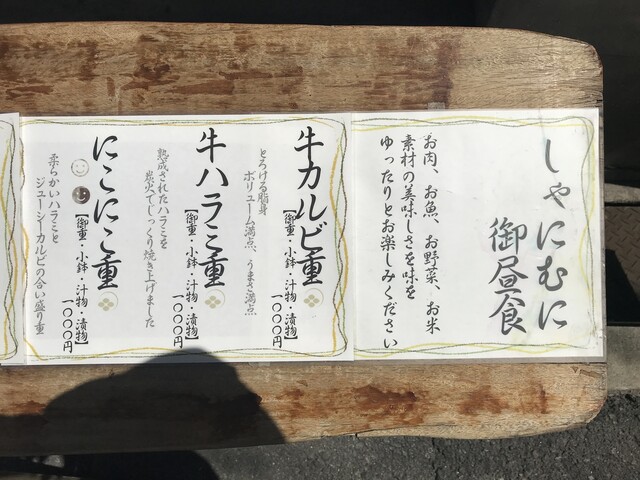 しゃにむに
御昼食
お肉、お魚、お野菜、お米
素材の美味しさを味を
ゆったりとお楽しみください
牛カルビ重
【御重・小鉢・汁物・漬物】
一〇〇〇円
とろける脂身
ボリューム満点、うまさ満点
牛ハラミ重
【御重・小鉢・汁物・漬物】
一〇〇〇円
熟成されたハラミを
炭火でじっくり焼き上げました
にこにこ重
【御重・小鉢・汁物・漬物】
一〇〇〇円
柔らかいハラミと
ジューシーカルビの合い盛り重